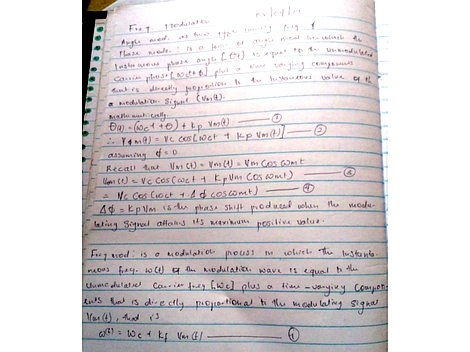 Freq Modulation
Angle mod. as two type namely freq &
Phase mode.: is a form of angle mod in which the
Instaneous phase angle [θt] is equal to the unmodulated
Carrier phase [wct + φ] plus a time varying components
that is directly proportion to the Instaneous value of the
a modulation signal (Vm(t).
mathematically.
θ(t) = (wct + θ) + Kp Vm(t) — ①
∴ Vφm(t) = Vc cos[wct + Kp Vm(t)] — ②
assuming φ = 0
Recall that Vm(t) = Vm(t) = Vm Cos wmt
Vφm(t) = Vc Cos (wct + KpVm Cos wmt) — ③
= Vc Cos (wct + Δφ cos wmt) — ④
Δφ = KpVm is the phase shift produced when the modu-
lating signal attains its maximum positive value.
Freq mod: is a modulation process in which the Instanta-
neous freq. w(t) of the modulation wave is equal to the
unmodulated Carrier freq [wc] plus a time-varying Compon-
ents that is directly proportional to the modulating signal
Vm(t), that is
w(t) = wc + Kf Vm(t) — ①